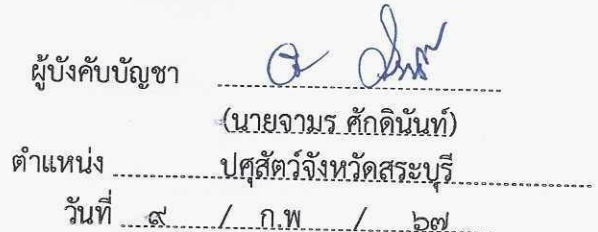 ผู้บังคับบัญชา
(นายจามร ศักดินันท์)
ตำแหน่ง ปศุสัตว์จังหวัดสระบุรี
วันที่ ๙ / ก.พ / ๖๗